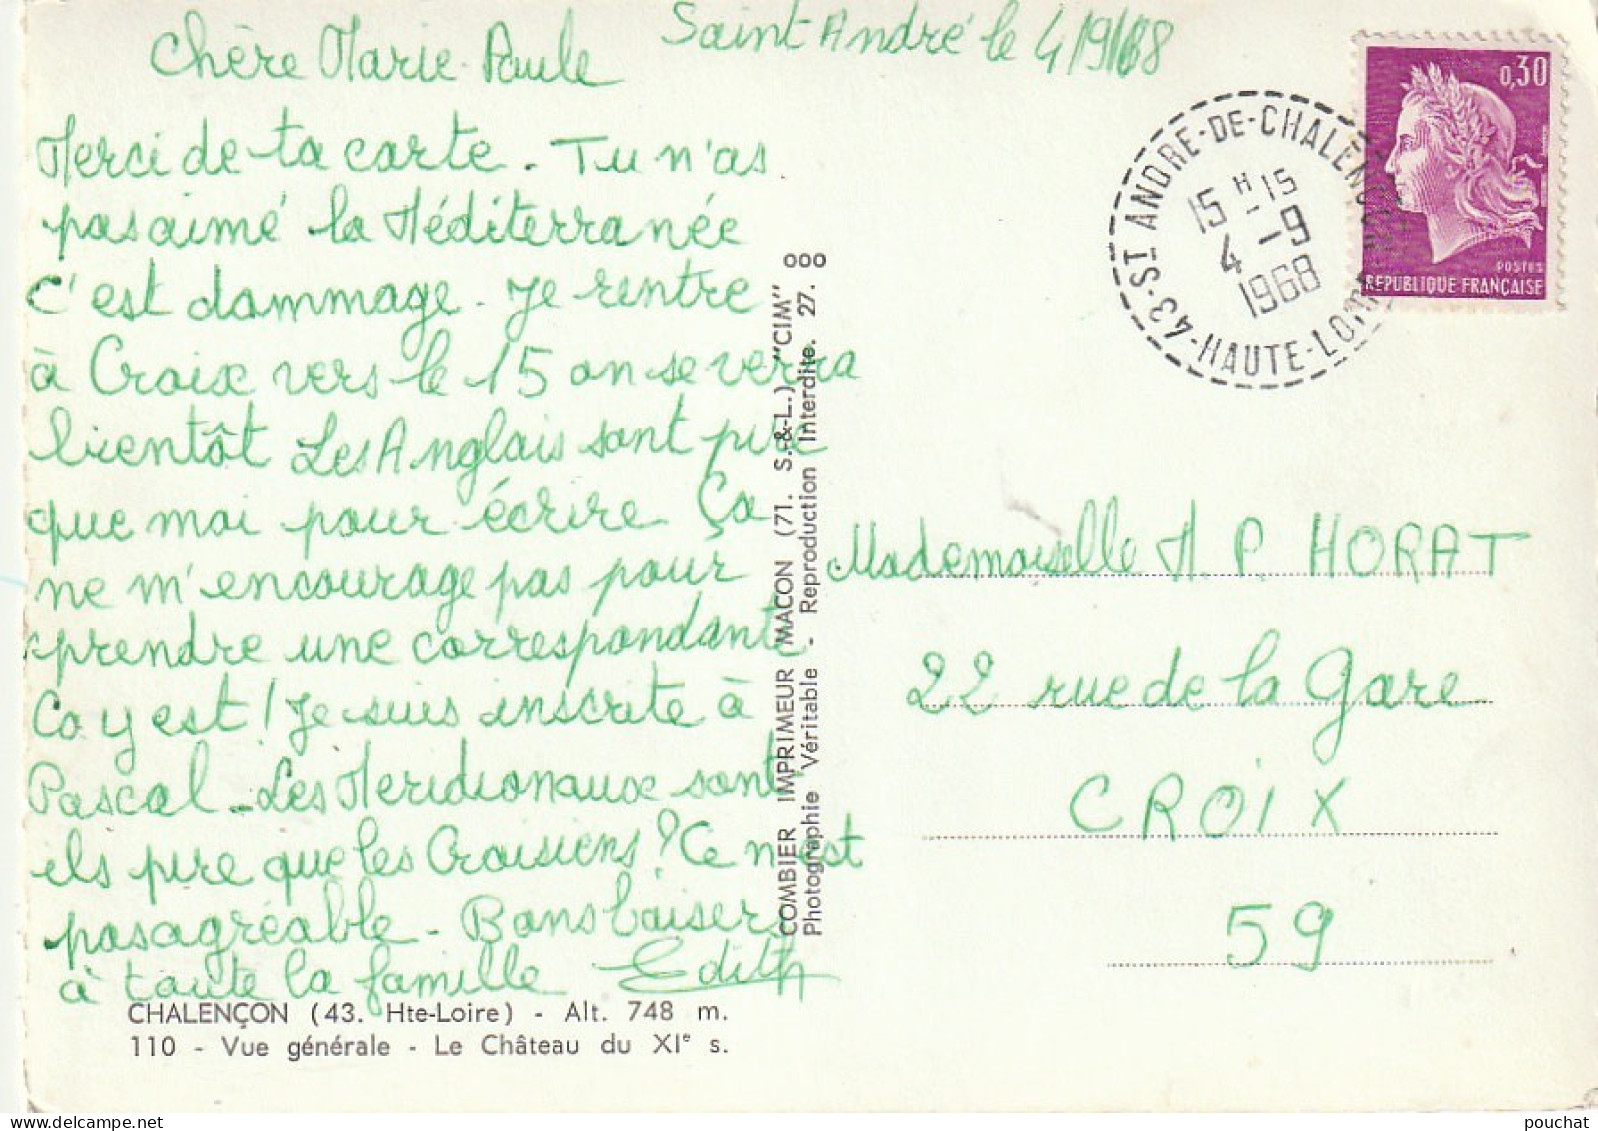 Saint André le 4/9/68
Chère Marie-Paule
Merci de ta carte. Tu n'as
pas aimé la Méditerranée
c'est dommage. Je rentre
à Croix vers le 15 on se verra
bientôt Les Anglais sont pire
que moi pour écrire Ça
ne m'encourage pas pour
prendre une correspondante
Ca y est! Je suis inscrite à
Pascal - Les Meridionaux sont
ils pire que les Croisiens? Ce n'est
pas agréable - Bons baisers
à toute la famille Edith
CHALENÇON (43. Hte-Loire) - Alt. 748 m.
110 - Vue générale - Le Château du XIe s.
COMBIER IMPRIMEUR MACON (71. S.-&-L.) "CIM"
Photographie Véritable - Reproduction Interdite. 27. 000
0,30
POSTES
REPUBLIQUE FRANÇAISE
43-ST ANDRE-DE-CHALENCON
15 H -15
4 -9
1968
HAUTE-LOIRE
Mademoiselle M. P. HORAT
22 rue de la Gare
CROIX
59
pouchat